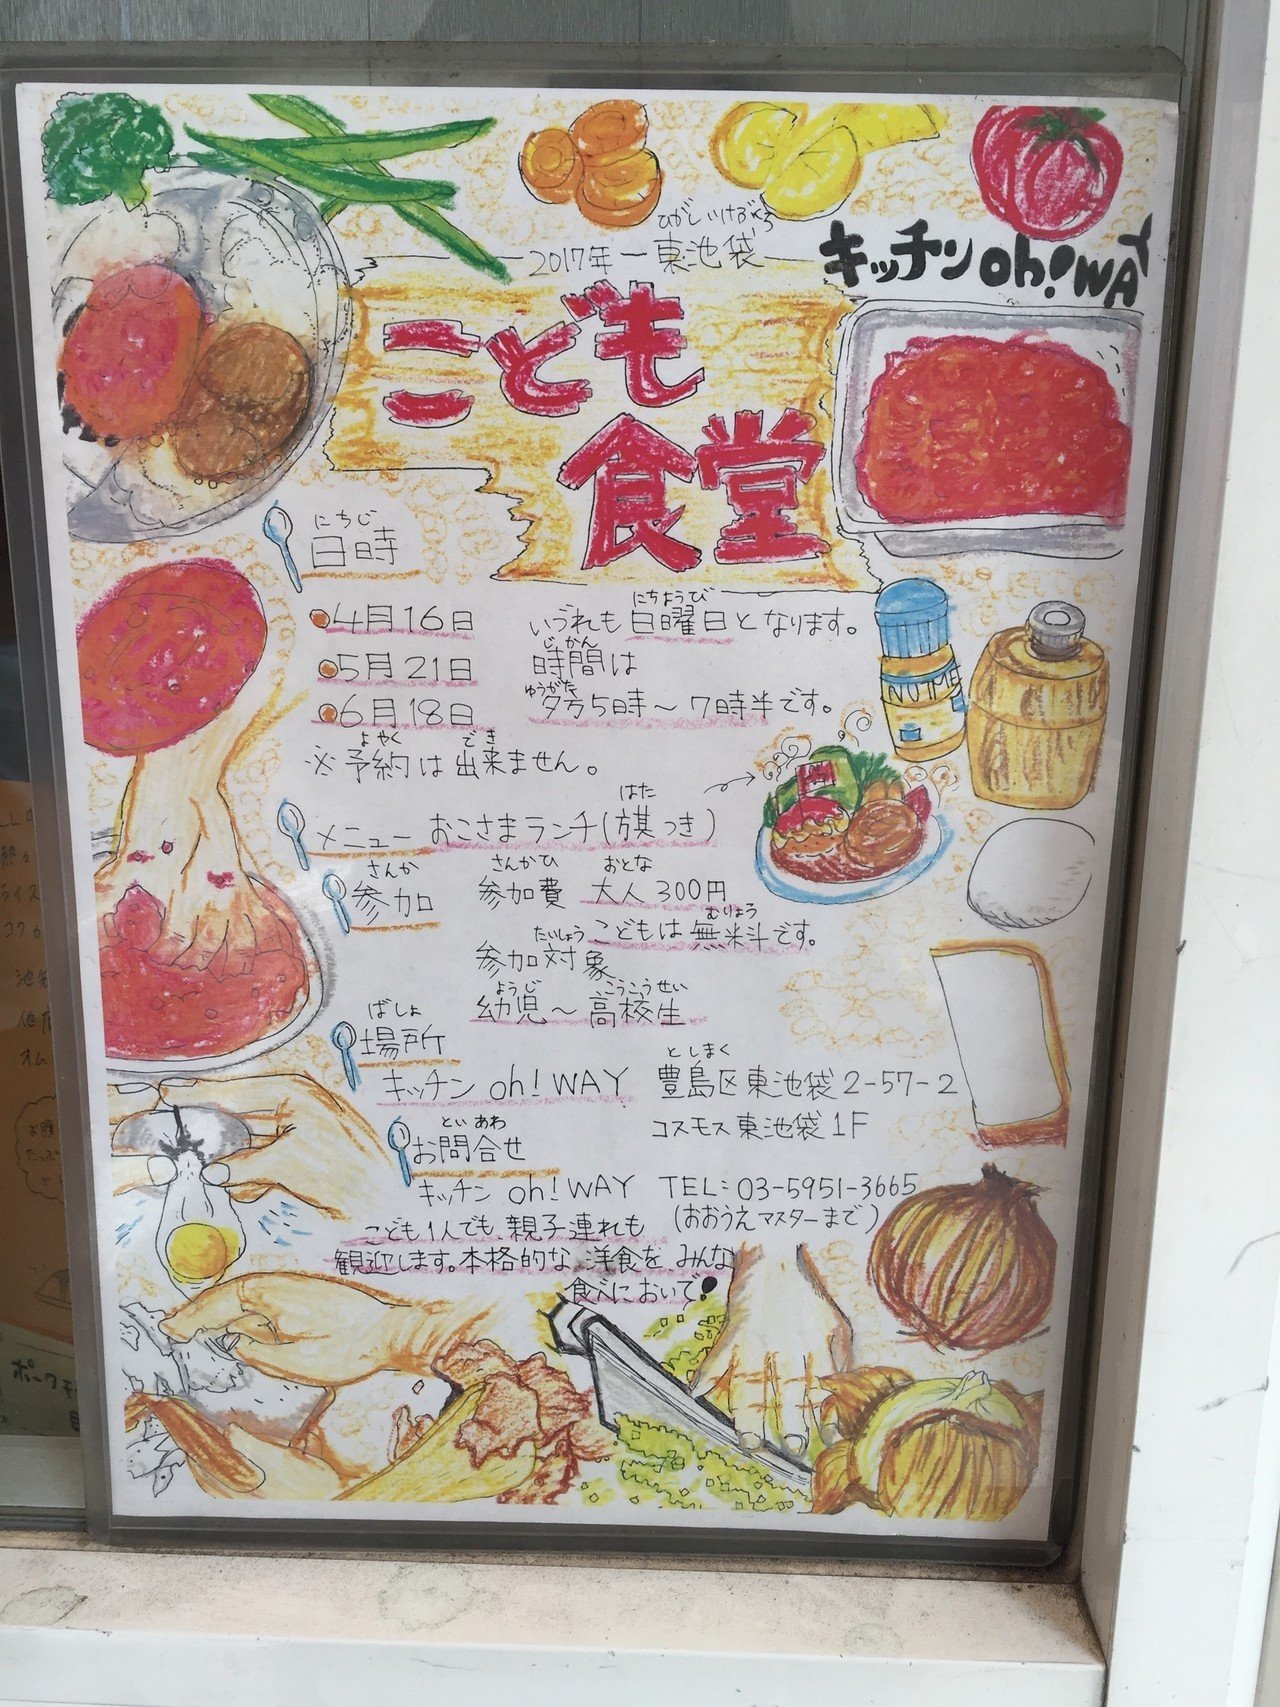 ひがしいけぶくろ
2017年 ー 東池袋
キッチンoh!WAY
こども
食堂
にちじ
日時
4月16日
5月21日
6月18日
にちようび
いづれも日曜日となります。
じかん
時間は
ゆうがた
夕方5時〜7時半です。
よやく でき
※予約は出来ません。
はた
メニュー おこさまランチ(旗つき)
さんか
参加
さんかひ おとな
参加費 大人300円
むりょう
こどもは無料です。
たいしょう
参加対象
ようじ こうこうせい
幼児〜高校生
ばしょ
場所
キッチン oh!WAY
としまく
豊島区東池袋2-57-2
コスモス東池袋1F
とい あわ
お問合せ
キッチン oh!WAY TEL:03-5951-3665
(おおうえマスターまで)
こども1人でも、親子連れも
観迎します。本格的な、洋食を みんな
食べにおいで!
NUTME